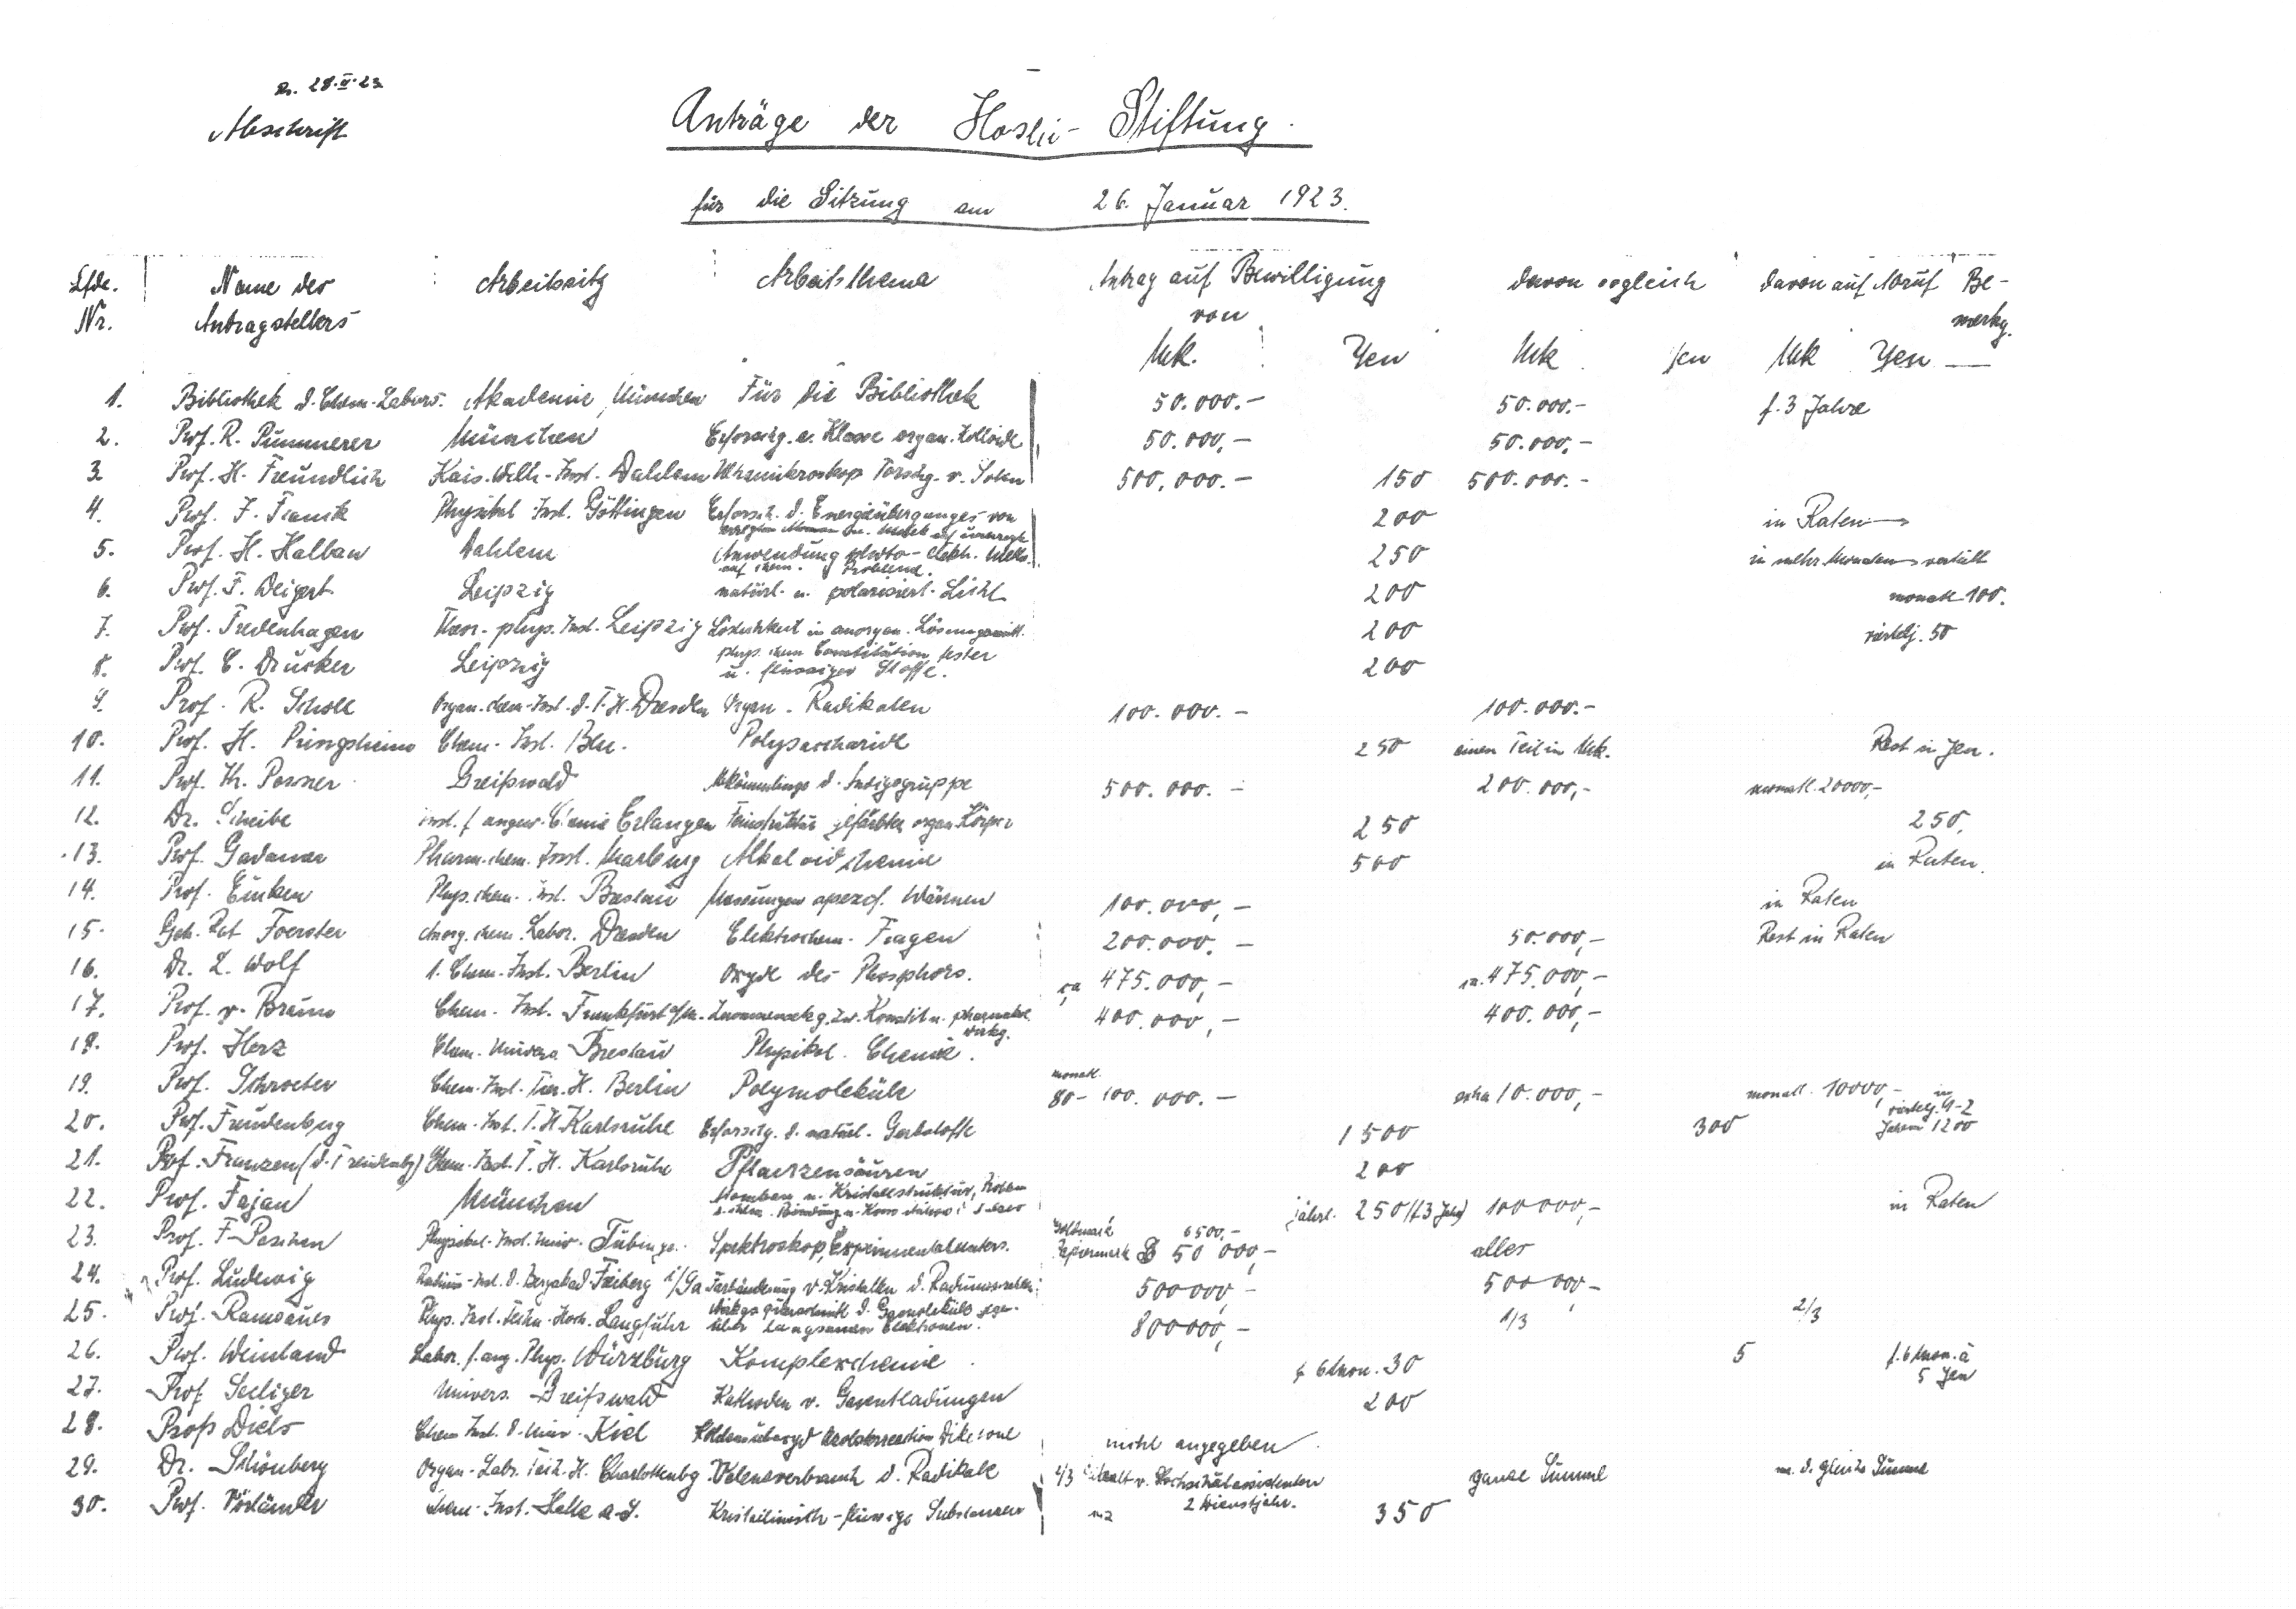 28.II.23
Abschrift
Anträge der Hoshi-Stiftung.
für die Sitzung am 26. Januar 1923.
Lfde. Name des Arbeitssitz Arbeitsthema Antrag auf Bewilligung davon sogleich davon auf Abruf Be-
Nr. Antragstellers von merkg.
Mk. Yen Mk Yen Mk Yen
1. Bibliothek d. Chem. Labors. Akademie München Für die Bibliothek 50.000.- 50.000.- f. 3 Jahre
2. Prof. R. Pummerer München Erforschg. e. Klasse organ. Kolloide 50.000,- 50.000,-
3. Prof. H. Freundlich Kais. Wilh.-Inst. Dahlem Ultramikroskop v. Solen 500.000.- 150 500.000.-
4. Prof. J. Franck Physikal. Inst. Göttingen Erforsch. d. Energieüberganges von 200 in Raten
5. Prof. H. Halban Dahlem Anwendung photo-elektr. Meth. 250 in mehr. Monaten verteilt
auf chem. Probleme.
6. Prof. F. Weigert Leipzig natürl. u. polarisiert. Licht 200 monatl. 100.
7. Prof. Fredenhagen Theor.-phys. Inst. Leipzig Löslichkeit in anorgan. Lösungsmitt. 200 viertelj. 50
8. Prof. C. Drucker Leipzig phys. chem Constitution fester 200
u. flüssiger Stoffe.
9. Prof. R. Scholl Organ.-chem-Inst. d. T.H. Dresden Organ. Radikalen 100.000.- 100.000.-
10. Prof. H. Pringsheim Chem.-Inst. Bln. Polysaccharide 250 einen Teil in Mk. Rest in Yen.
11. Prof. Th. Posner Greifswald Abkömmlinge d. Indigogruppe 500.000.- 200.000,- monatl. 20000,-
12. Dr. Scheibe Inst. f. angew. Chemie Erlangen Feinstruktur gefärbter organ. Körper 250 250,
13. Prof. Gadamer Pharm.-chem. Inst. Marburg Alkaloidchemie 500 in Raten.
14. Prof. Eucken Phys. chem. Inst. Breslau Messungen spezif. Wärmen 100.000,- in Raten
15. Geh. Rat Foerster Anorg. chem. Labor. Dresden Elektrochem. Fragen 200.000.- 50.000,- Rest in Raten
16. Dr. L. Wolf 1. Chem.-Inst. Berlin Oxyde des Phosphors. ca 475.000,- ca. 475.000,-
17. Prof. v. Braun Chem.-Inst. Frankfurt a/M. Zusammenhg. zw. Konstit. u. pharmakol. 400.000,- 400.000,-
wirkg.
18. Prof. Herz Chem. Univers. Breslau Physikal. Chemie.
19. Prof. Schroeter Chem. Inst. Tier. H. Berlin Polymoleküle monatl. 80-100.000.- extra 10.000,- monatl. 10000,-
20. Prof. Freudenberg Chem. Inst. T.H. Karlsruhe Erforschg. d. natürl. Gerbstoffe 1500 300 in viertelj. 1-2 Jahren 1200
21. Prof. Franzen (d. Freudenbg) Chem. Inst. T.H. Karlsruhe Pflanzensäuren 200
22. Prof. Fajan München Atombau u. Kristallstruktur, jährl. 250 (f. 3 Jahre) 100000,- in Raten
23. Prof. F. Paschen Physikal. Inst. Univ. Tübingen Spektroskop. Experimentalunters. Goldmark 6500,- alles
Papiermark 50 000,-
24. Prof. Ludewig Radium-Inst. d. Bergakad. Freiberg i/Sa Farbänderung v. Kristallen d. Radiumstrahlen 500000,- 500000,-
25. Prof. Ramsauer Phys. Inst. Techn. Hoch. Langfuhr Wirkgsquerschnitt d. Gasmoleküle gegen- 800000,- 1/3 2/3
über langsamen Elektronen.
26. Prof. Weinland Labor. f. ang. Phys. Würzburg Komplexchemie f. 6 Mon. 30 5 f. 6 Mon. à
5 Yen
27. Prof. Seeliger Univers. Greifswald Kathoden v. Gasentladungen 200
28. Prof. Diels Chem. Inst. d. Univ. Kiel Kohlensuboxyd Diketone nicht angegeben
29. Dr. Schönberg Organ. Labr. Tech. H. Charlottenbg. Valenzverbrauch d. Radikale 4/3 Gehalt v. Hochschulassistenten ganze Summe
2 Dienstjahr.
30. Prof. Vorländer Chem. Inst. Halle a. S. Kristallinisch-flüssige Substanzen 350